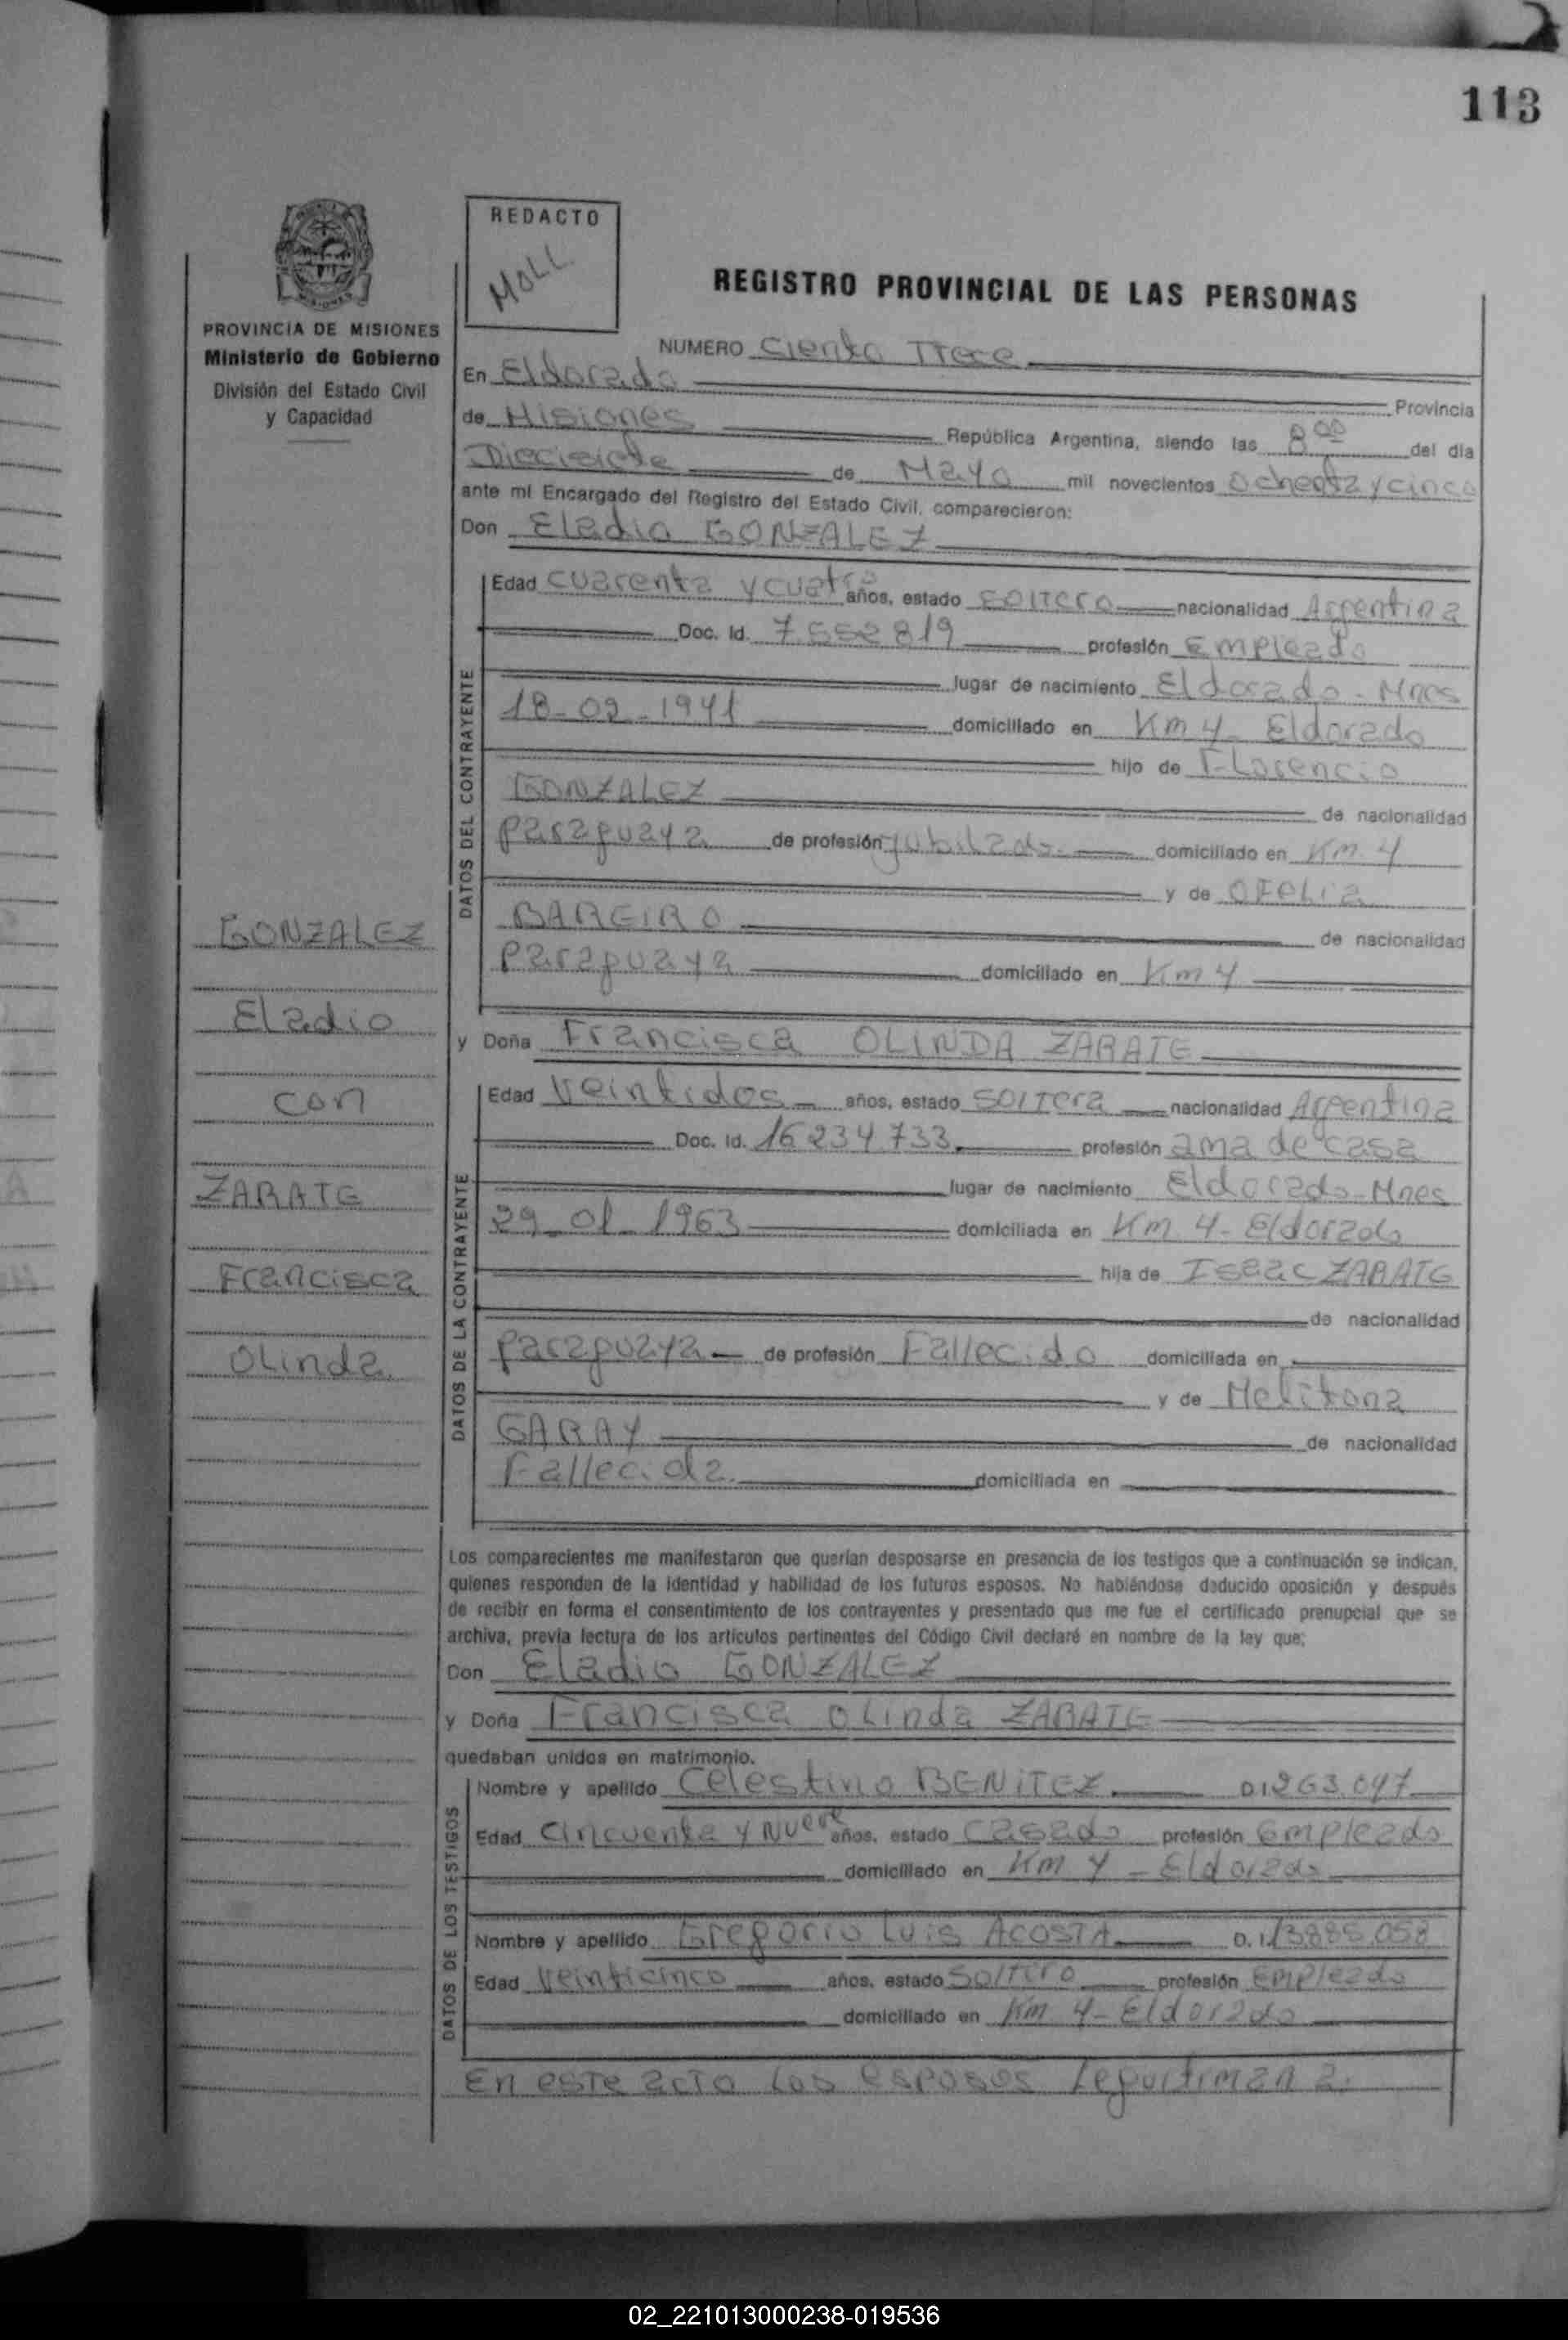 113
REDACTO
MOLL
REGISTRO PROVINCIAL DE LAS PERSONAS
PROVINCIA DE MISIONES
Ministerio de Gobierno
División del Estado Civil
y Capacidad
NUMERO Ciento Trece
En Eldorado Provincia
de Misiones República Argentina, siendo las 8 00 del día
Diecisiete de Mayo mil novecientos ochenta y cinco
ante mí Encargado del Registro del Estado Civil, comparecieron:
Don Eladio GONZALEZ
DATOS DEL CONTRAYENTE
Edad cuarenta y cuatro años, estado soltero nacionalidad Argentina
Doc. Id. 7.552819 profesión Empleado
lugar de nacimiento Eldorado - Mnes
18-02-1941 domiciliado en Km 4 - Eldorado
hijo de Florencio
GONZALEZ de nacionalidad
paraguaya de profesión jubilado domiciliado en Km. 4
y de OFELIA
BAREIRO de nacionalidad
paraguaya domiciliado en Km 4
GONZALEZ
Eladio
con
ZARATE
Francisca
Olinda
y Doña Francisca OLINDA ZARATE
DATOS DE LA CONTRAYENTE
Edad Veintidos años, estado soltera nacionalidad Argentina
Doc. Id. 16 234.733 profesión ama de casa
lugar de nacimiento Eldorado - Mnes
29-01-1963 domiciliada en Km 4 - Eldorado
hija de Isaac ZARATE
de nacionalidad
paraguaya de profesión Fallecido domiciliada en
y de Melitona
GARAY de nacionalidad
Fallecida domiciliada en
Los comparecientes me manifestaron que querían desposarse en presencia de los testigos que a continuación se indican,
quienes responden de la identidad y habilidad de los futuros esposos. No habiéndose deducido oposición y después
de recibir en forma el consentimiento de los contrayentes y presentado que me fue el certificado prenupcial que se
archiva, previa lectura de los artículos pertinentes del Código Civil declaré en nombre de la ley que;
Don Eladio GONZALEZ
y Doña Francisca Olinda ZARATE
quedaban unidos en matrimonio.
DATOS DE LOS TESTIGOS
Nombre y apellido Celestino BENITEZ
Edad cincuenta y nueve años, estado casado profesión Empleado
domiciliado en Km 4 - Eldorado
Nombre y apellido Gregorio Luis ACOSTA D.I. 13885.058
Edad Veinticinco años, estado Soltero profesión Empleado
domiciliado en Km 4 - Eldorado
En este acto los esposos legitiman a.
02_221013000238-019536